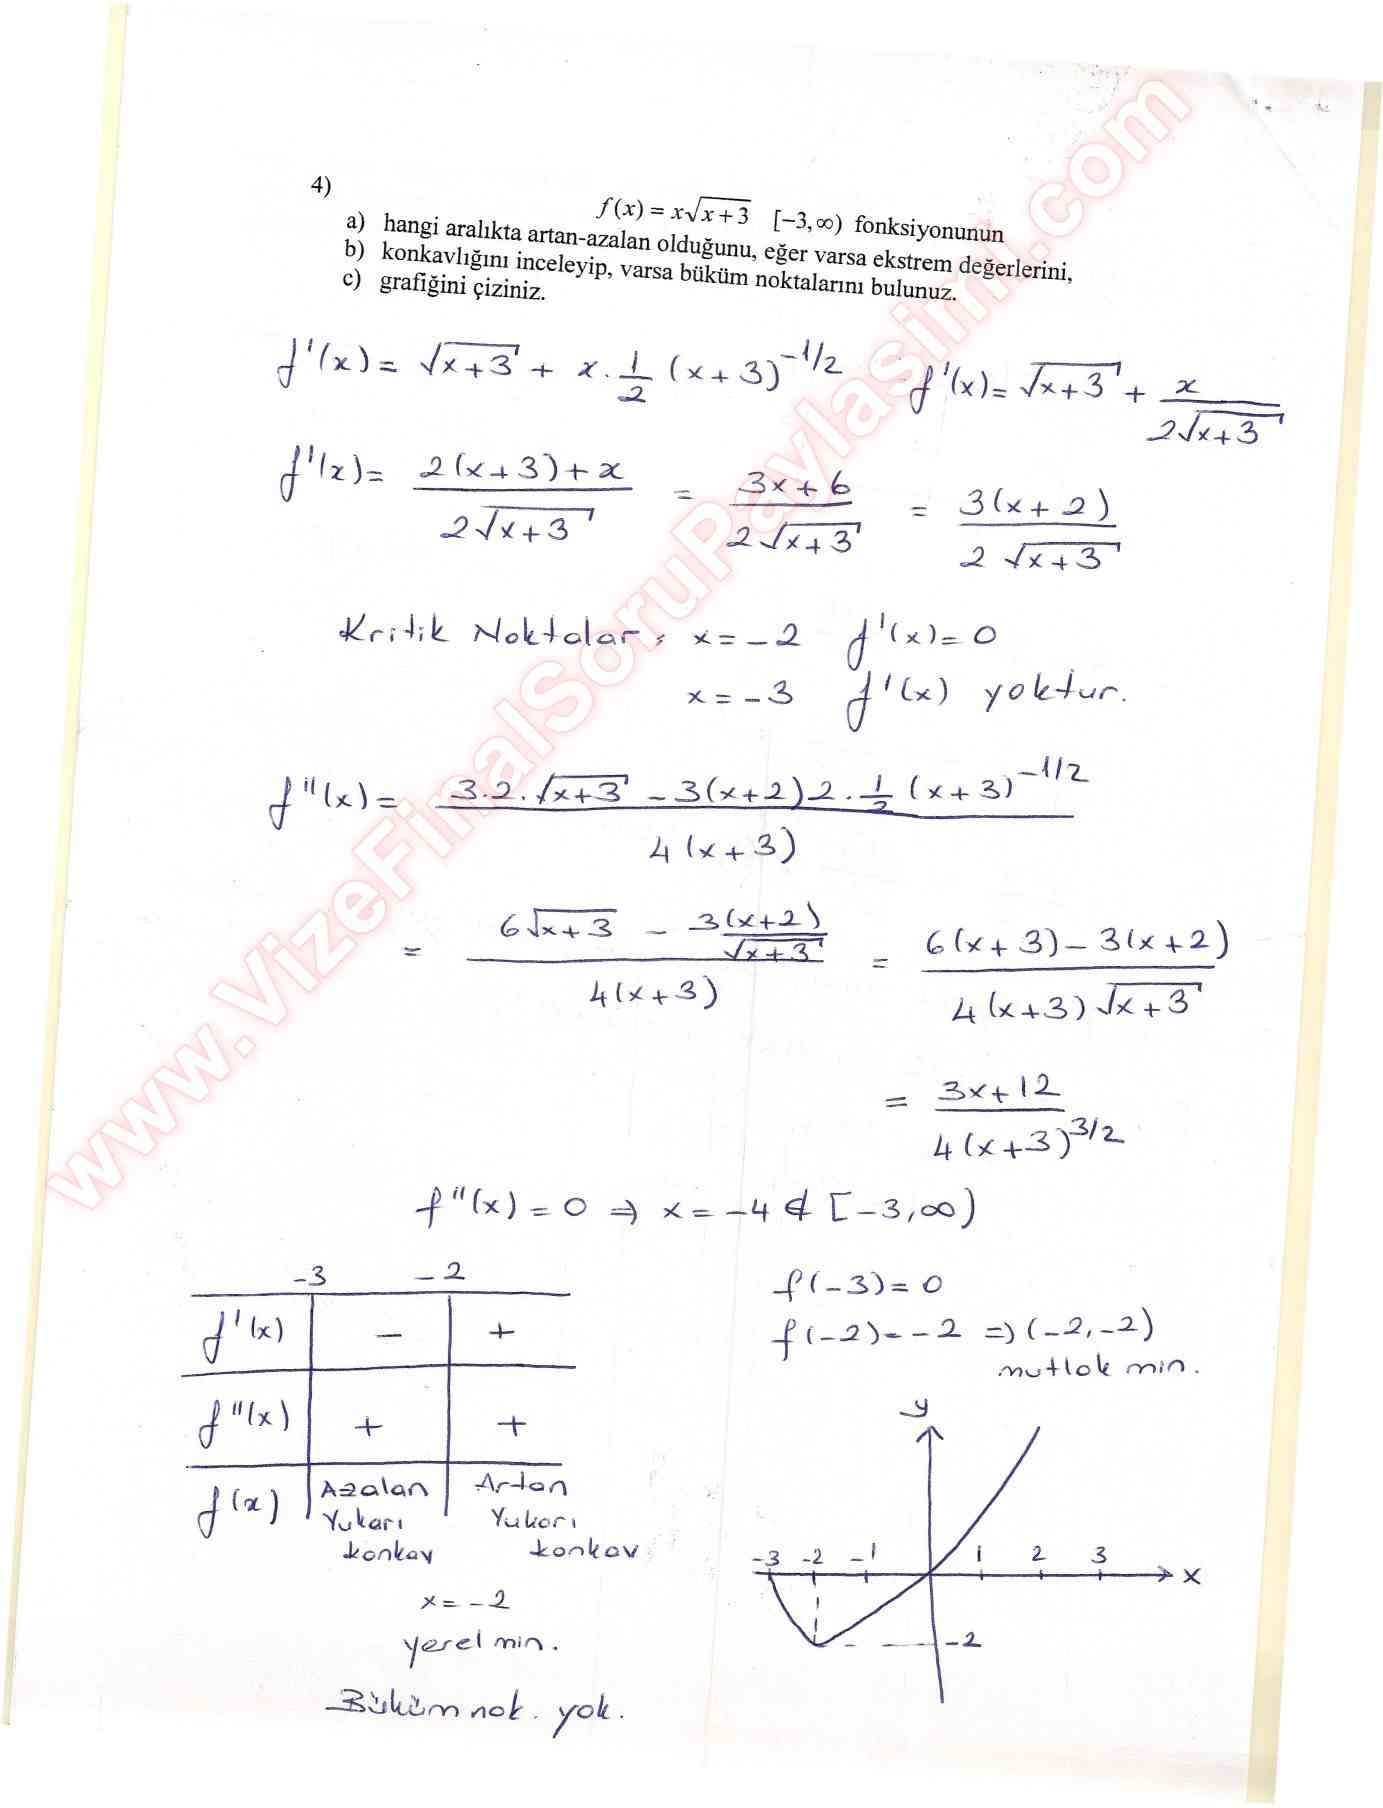 4)
f(x) = x√(x+3) [−3,∞) fonksiyonunun
a) hangi aralıkta artan-azalan olduğunu, eğer varsa ekstrem değerlerini,
b) konkavlığını inceleyip, varsa büküm noktalarını bulunuz.
c) grafiğini çiziniz.
f'(x) = √(x+3) + x.1/2 (x+3)^(-1/2) f'(x) = √(x+3) + x/(2√(x+3))
f'(x) = (2(x+3)+x)/(2√(x+3)) = (3x+6)/(2√(x+3)) = 3(x+2)/(2√(x+3))
Kritik Noktalar: x = -2 f'(x) = 0
x = -3 f'(x) yoktur.
f''(x) = (3.2.√(x+3) - 3(x+2)2.1/2 (x+3)^(-1/2))/(4(x+3))
= (6√(x+3) - 3(x+2)/√(x+3))/(4(x+3)) = (6(x+3)-3(x+2))/(4(x+3)√(x+3))
= (3x+12)/(4(x+3)^(3/2))
f''(x) = 0 ⇒ x = -4 ∉ [-3,∞)
-3 -2
f'(x) - +
f''(x) + +
f(x) Azalan Artan
Yukarı Yukarı
konkav konkav
x = -2
yerel min.
Büküm nok. yok.
f(-3) = 0
f(-2) = -2 ⇒ (-2,-2)
mutlak min.
y
-3 -2 -1 1 2 3 x
-2
www.VizeFinalSoruPaylasimi.com